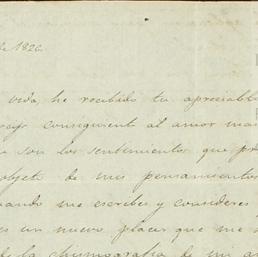 de 1826
vida, he recibido tu apreciable
consiguient al amor
son los sentimientos que
objeto de mis pensamientos
cuando me escribes y consideres
es un nuevo placer que me
de la chismografia de mi